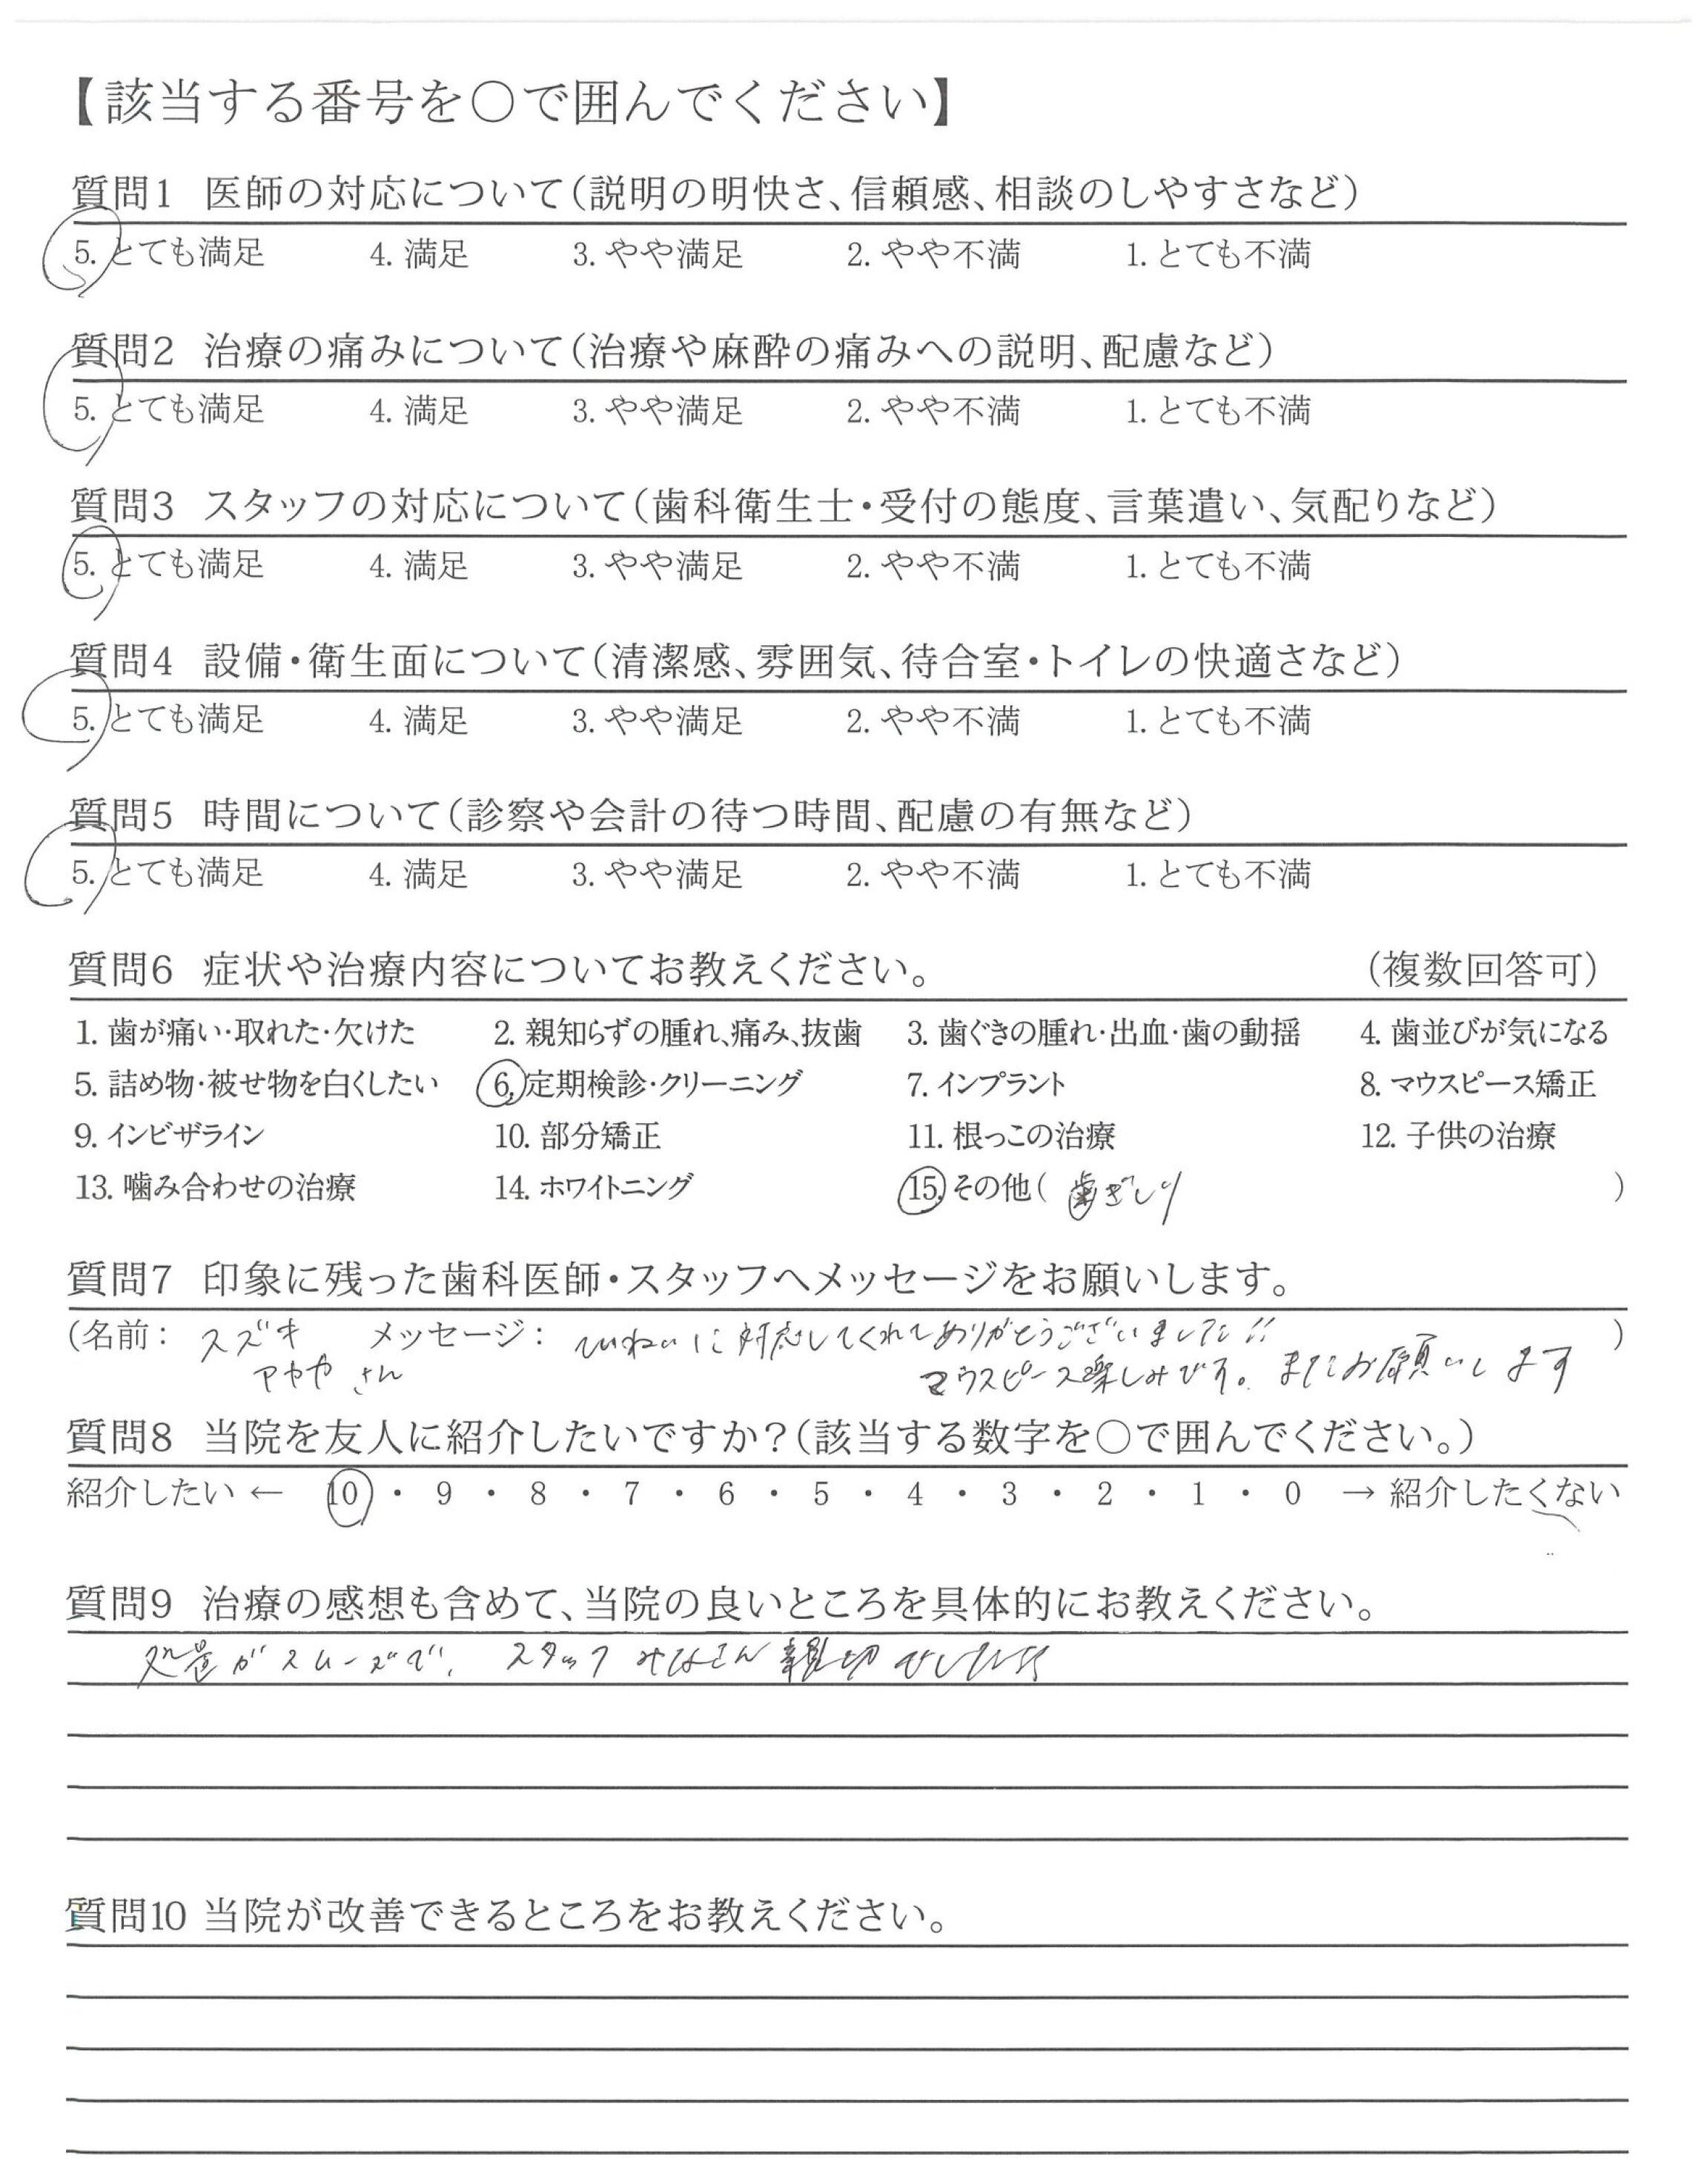 【該当する番号を○で囲んでください】
質問1 医師の対応について(説明の明快さ、信頼感、相談のしやすさなど)
5. とても満足 4. 満足 3. やや満足 2. やや不満 1. とても不満
質問2 治療の痛みについて(治療や麻酔の痛みへの説明、配慮など)
5. とても満足 4. 満足 3. やや満足 2. やや不満 1. とても不満
質問3 スタッフの対応について(歯科衛生士・受付の態度、言葉遣い、気配りなど)
5. とても満足 4. 満足 3. やや満足 2. やや不満 1. とても不満
質問4 設備・衛生面について(清潔感、雰囲気、待合室・トイレの快適さなど)
5. とても満足 4. 満足 3. やや満足 2. やや不満 1. とても不満
質問5 時間について(診察や会計の待つ時間、配慮の有無など)
5. とても満足 4. 満足 3. やや満足 2. やや不満 1. とても不満
質問6 症状や治療内容についてお教えください。 (複数回答可)
1. 歯が痛い・取れた・欠けた 2. 親知らずの腫れ、痛み、抜歯 3. 歯ぐきの腫れ・出血・歯の動揺 4. 歯並びが気になる
5. 詰め物・被せ物を白くしたい 6. 定期検診・クリーニング 7. インプラント 8. マウスピース矯正
9. インビザライン 10. 部分矯正 11. 根っこの治療 12. 子供の治療
13. 噛み合わせの治療 14. ホワイトニング 15. その他( 歯ぎしり )
質問7 印象に残った歯科医師・スタッフへメッセージをお願いします。
(名前: スズキ メッセージ: ていねいに対応してくれてありがとうございました!! )
アヤヤ さん マウスピース楽しみです。またお願いします
質問8 当院を友人に紹介したいですか?(該当する数字を○で囲んでください。)
紹介したい ← 10 ・ 9 ・ 8 ・ 7 ・ 6 ・ 5 ・ 4 ・ 3 ・ 2 ・ 1 ・ 0 → 紹介したくない
質問9 治療の感想も含めて、当院の良いところを具体的にお教えください。
処置がスムーズで、スタッフみなさん親切でした
質問10 当院が改善できるところをお教えください。